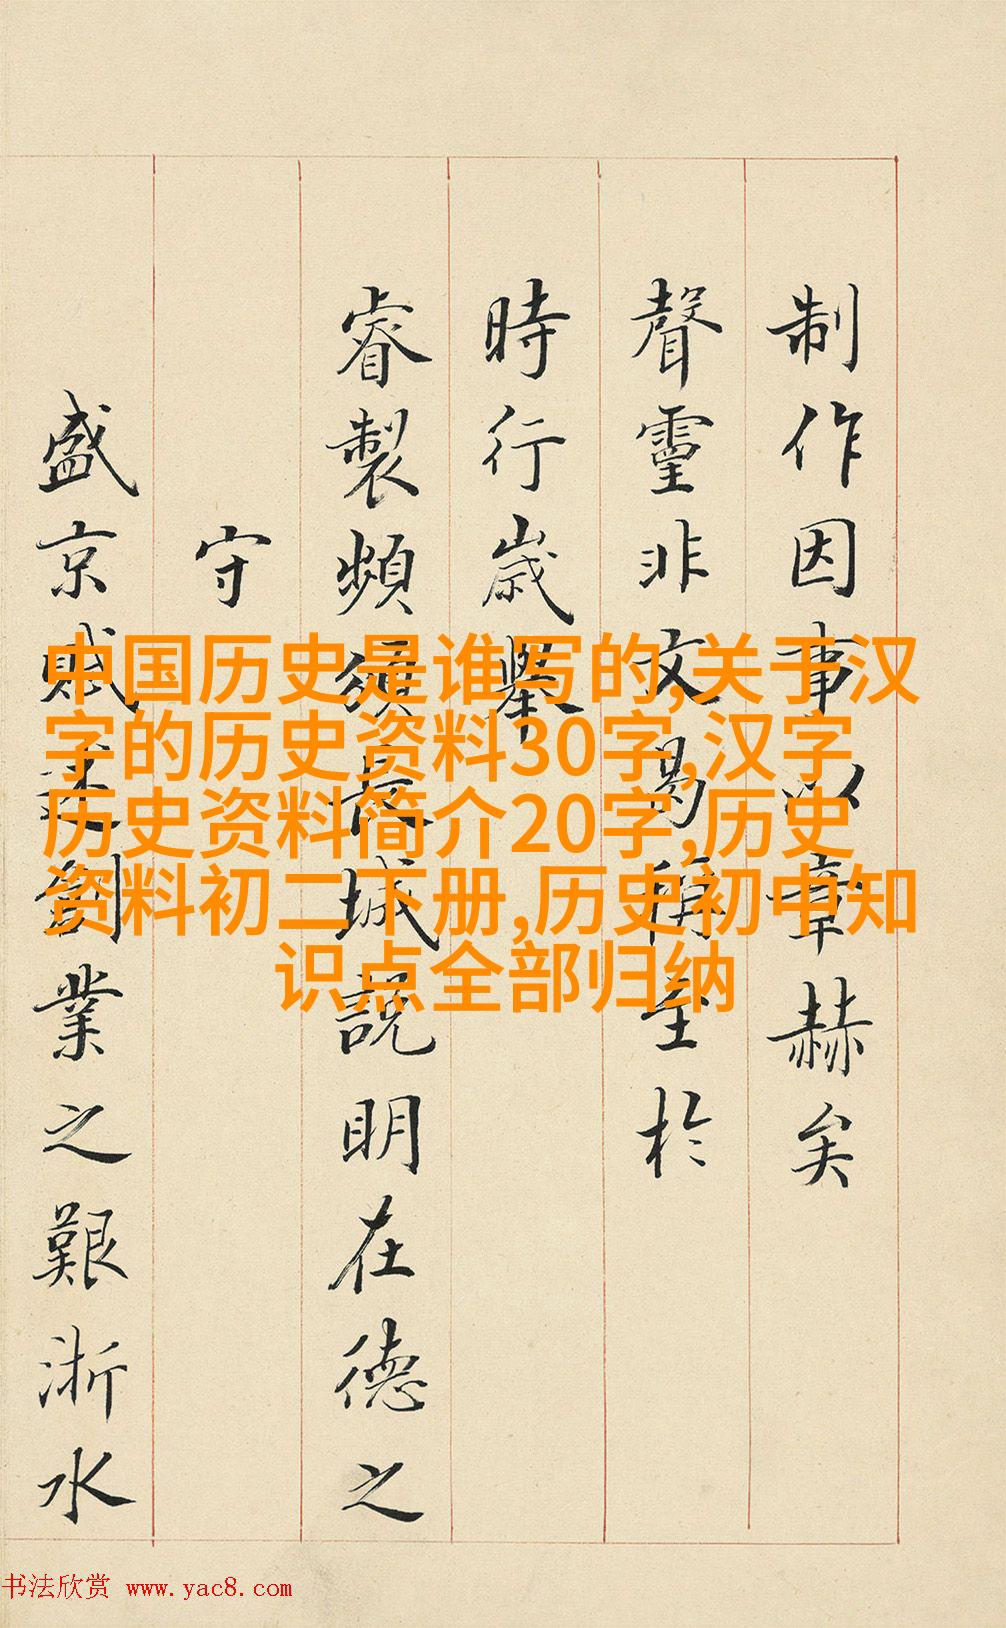 制作因事以章赫矣
聲靈非文曷稱至於
時行歲舉
睿製頻頒長城說明在德之
守
盛京賦述創業之艱浙水
中国历史是谁写的,关于汉
字的历史资料30字,汉字
历史资料简介20字,历史
资料初二下册,历史初中知
识点全部归纳
书法欣赏 www.yac8.com